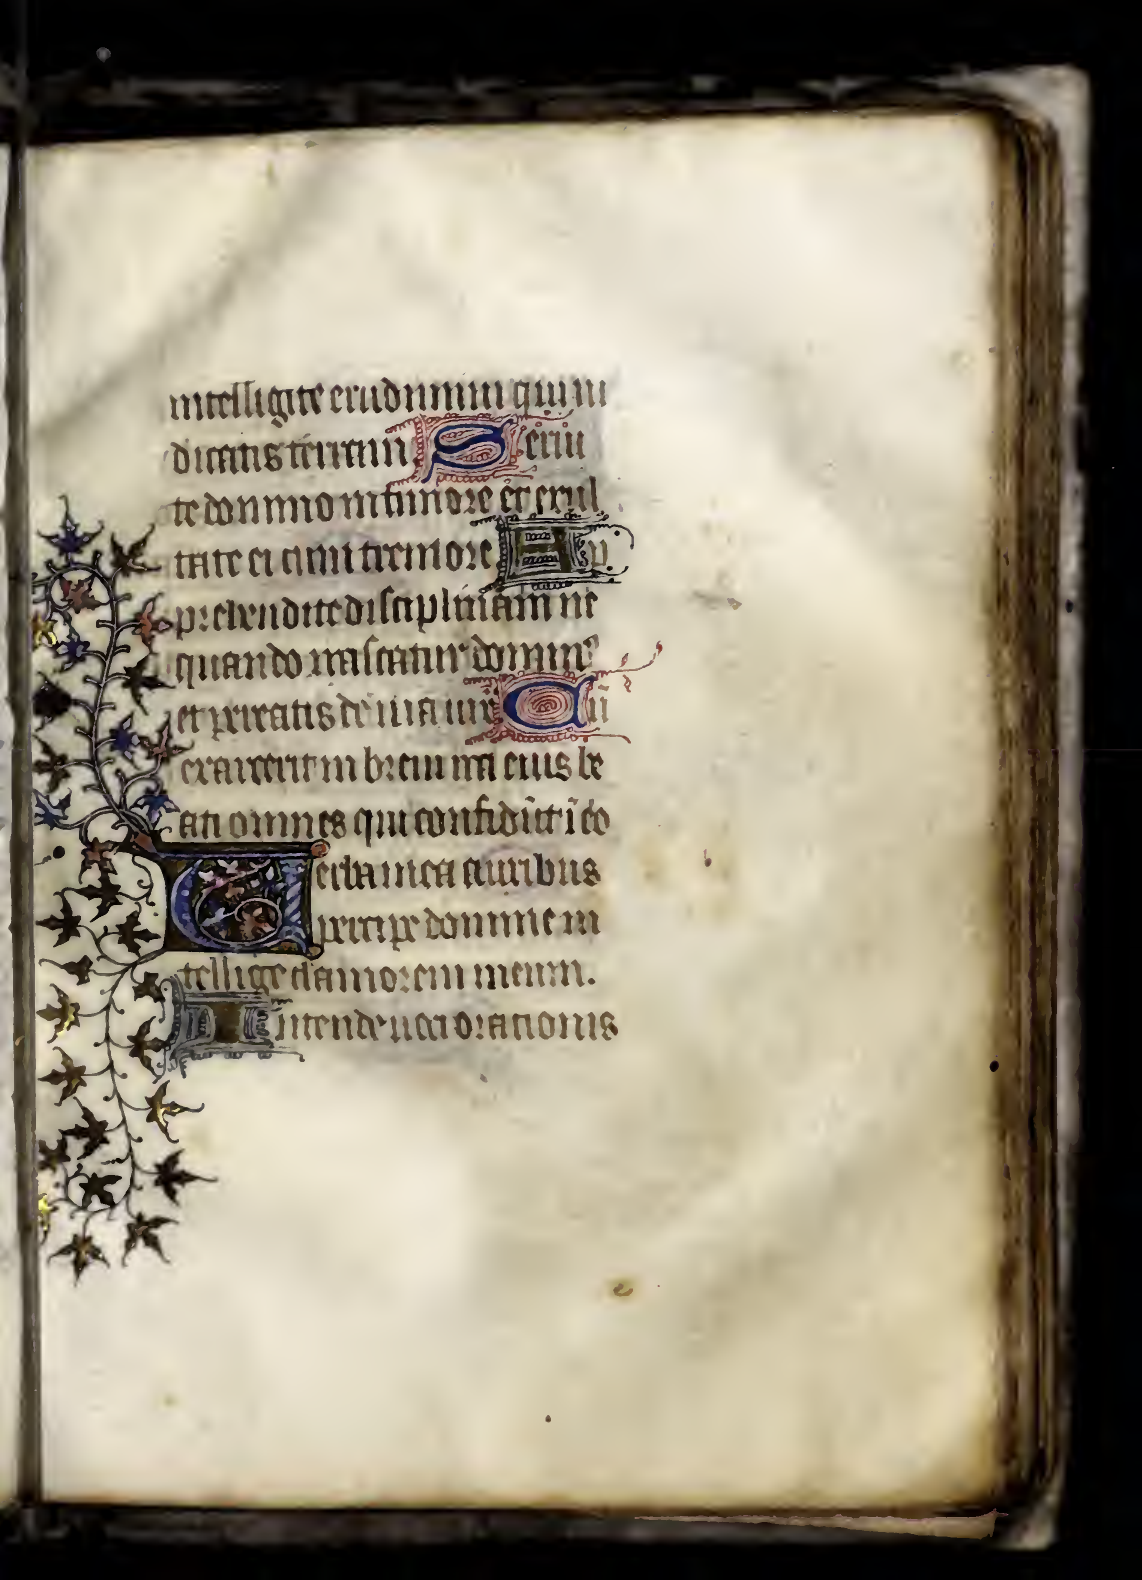 intelligite erudimini qui iu
dicatis terram. Serui
te domino in timore et exul
tate ei cum tremore Ap
prehendite disciplinam ne
quando irascatur dominꝰ
et pereatis de uia iusta Cū
exarserit in breui ira eius be
ati omnes qui confidūt ī eo
Verba mea auribus
percipe domine in
tellige clamorem meum.
Intende uoci orationis